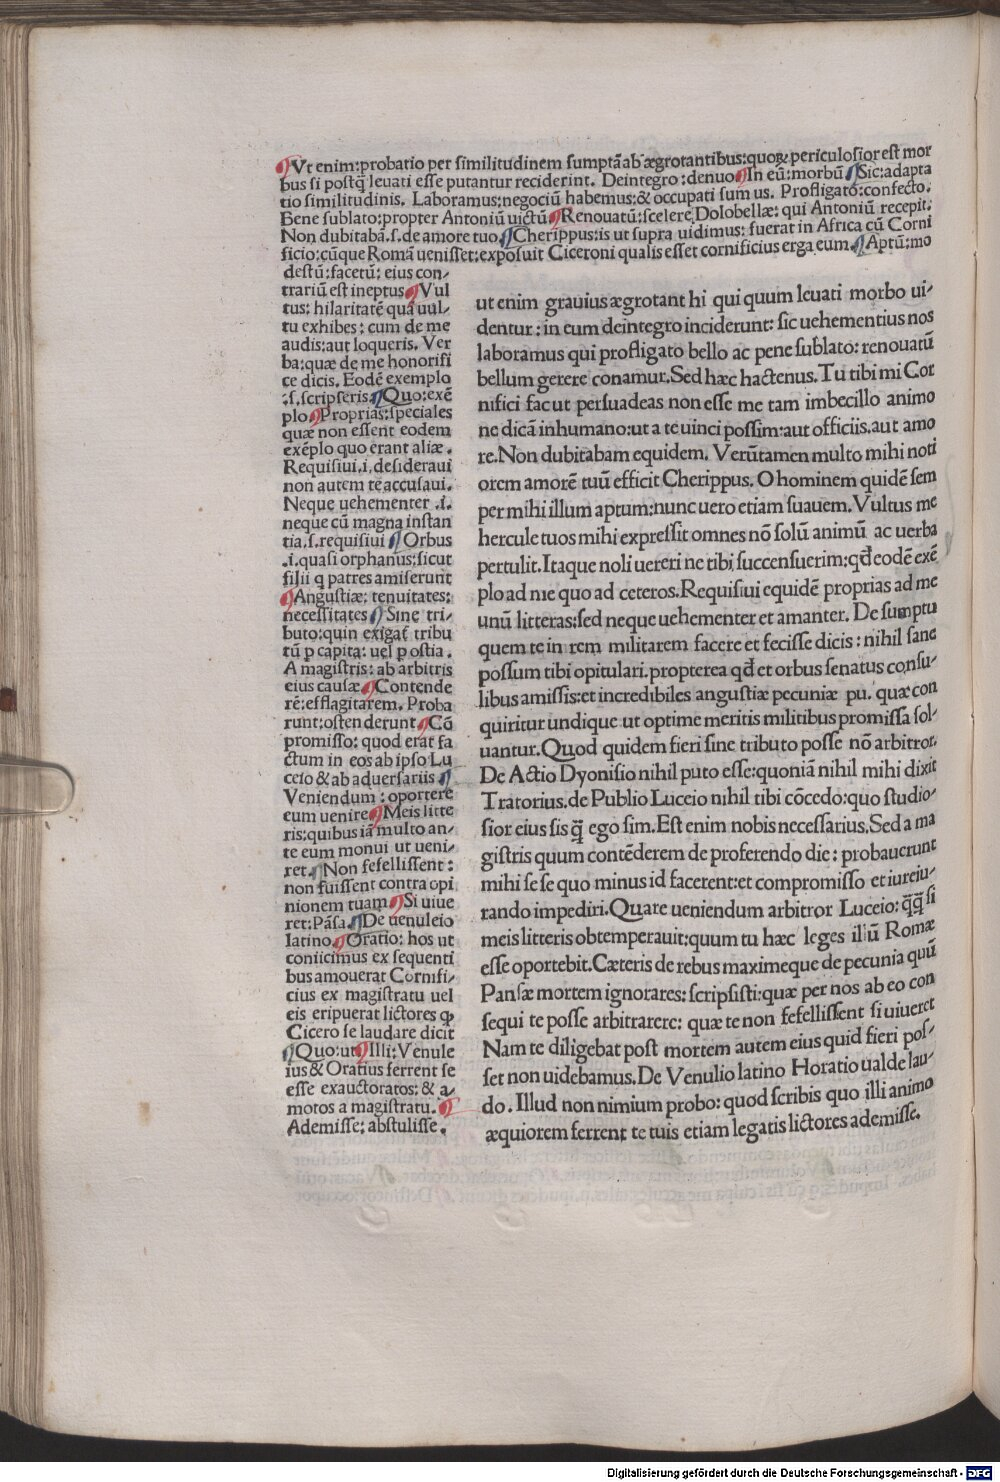 Ut enim:probatio per similitudinem sumptā ab ægrotantibus:quoꝝ periculosior est mor
bus si postq̄ leuati esse putantur reciderint. Deintegro :denuo In eū:morbū Sic:adapta
tio similitudinis. Laboramus:negociū habemus:& occupati sumus. Profligato:confecto.
Bene sublato:propter Antoniū uictū Renouatū:scelere Dolobellæ: qui Antoniū recepit.
Non dubitabā.s.de amore tuo Cherippus:is ut supra uidimus: fuerat in Africa cū Corni
ficio:cūque Romā uenisset:exposuit Ciceroni qualis esset cornificius erga eum. Aptū:mo
destū:facetū: eius con-
trariū est ineptus Vul
tus: hilaritatē quā uul-
tu exhibes: cum de me
audis:aut loqueris. Ver
ba:quæ de me honorifi
ce dicis. Eodē exemplo
.s.scripseris Quo:exē
plo Proprias:speciales
quæ non essent eodem
exēplo quo erant aliæ.
Requisiui.i.desideraui
non autem te accusaui.
Neque uehementer .i.
neque cū magna instan
tia.s.requisiui Orbus
.i.quasi orphanus:sicut
filii q patres amiserunt
Angustiæ: tenuitates:
necessitates Sine tri-
buto:quin exigat̄ tribu
tū p capita: uel p ostia.
A magistris: ab arbitris
eius causæ Contende
rē:efflagitarem. Proba
runt:ostenderunt Cō
promisso: quod erat fa
ctum in eos ab ipso Lu
ceio & ab aduersariis
Veniendum : oportere
eum uenire Meis litte
ris:quibus iā multo an-
te eum monui ut ueni-
ret. Non fefellissent:
non fuissent contra opi
nionem tuam Si uiue
ret:Pāsa De uenuleio
latino. Oratio: hos ut
coniicimus ex sequenti
bus amouerat Cornifi-
cius ex magistratu uel
eis eripuerat lictores ꝙ
Cicero se laudare dicit
Quo:ut Illi: Venule
ius & Oratius ferrent se
esse exauctoratos: & a-
motos a magistratu.
Ademisse: abstulisse.
ut enim grauius ægrotant hi qui quum leuati morbo ui-
dentur: in eum deintegro inciderunt: sic uehementius nos
laboramus qui profligato bello ac pene sublato: renouatū
bellum gerere conamur. Sed hæc hactenus. Tu tibi mi Cor
nifici fac ut persuadeas non esse me tam imbecillo animo
ne dicā inhumano:ut a te uinci possim:aut officiis.aut amo
re. Non dubitabam equidem. Verūtamen multo mihi noti
orem amorē tuū efficit Cherippus. O hominem quidē sem
per mihi illum aptum:nunc uero etiam suauem. Vultus me
hercule tuos mihi expressit omnes nō solū animū ac uerba
pertulit. Itaque noli uereri ne tibi succensuerim:qđ eodē exē
plo ad me quo ad ceteros. Requisiui equidē proprias ad me
unū litteras:sed neque uehementer et amanter. De sumptu
quem te in rem militarem facere et fecisse dicis : nihil sane
possum tibi opitulari.propterea qđ et orbus senatus consu-
libus amissis:et incredibiles angustiæ pecuniæ pu. quæ con
quiritur undique ut optime meritis militibus promissa sol-
uantur. Quod quidem fieri sine tributo posse nō arbitror.
De Actio Dyonisio nihil puto esse:quoniā nihil mihi dixit
Tratorius.de Publio Luceio nihil tibi cōcedo:quo studio-
sior eius sis q̄ ego sim. Est enim nobis necessarius. Sed a ma
gistris quum contēderem de proferendo die: probauerunt
mihi se se quo minus id facerent:et compromisso et iureiu-
rando impediri. Quare ueniendum arbitror Luceio: q̄q̄ si
meis litteris obtemperauit:quum tu hæc leges illū Romæ
esse oportebit. Cæteris de rebus maximeque de pecunia quū
Pansæ mortem ignorares: scripsisti:quæ per nos ab eo con
sequi te posse arbitrarere: quæ te non fefellissent si uiueret
Nam te diligebat post mortem autem eius quid fieri pos-
set non uidebamus. De Venulio latino Horatio ualde lau-
do. Illud non nimium probo: quod scribis quo illi animo
æquiorem ferrent te tuis etiam legatis lictores ademisse.
Digitalisierung gefördert durch die Deutsche Forschungsgemeinschaft - DFG